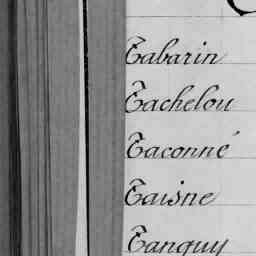 Tabarin
Tachelou
Taconné
Taisne
Tanquy